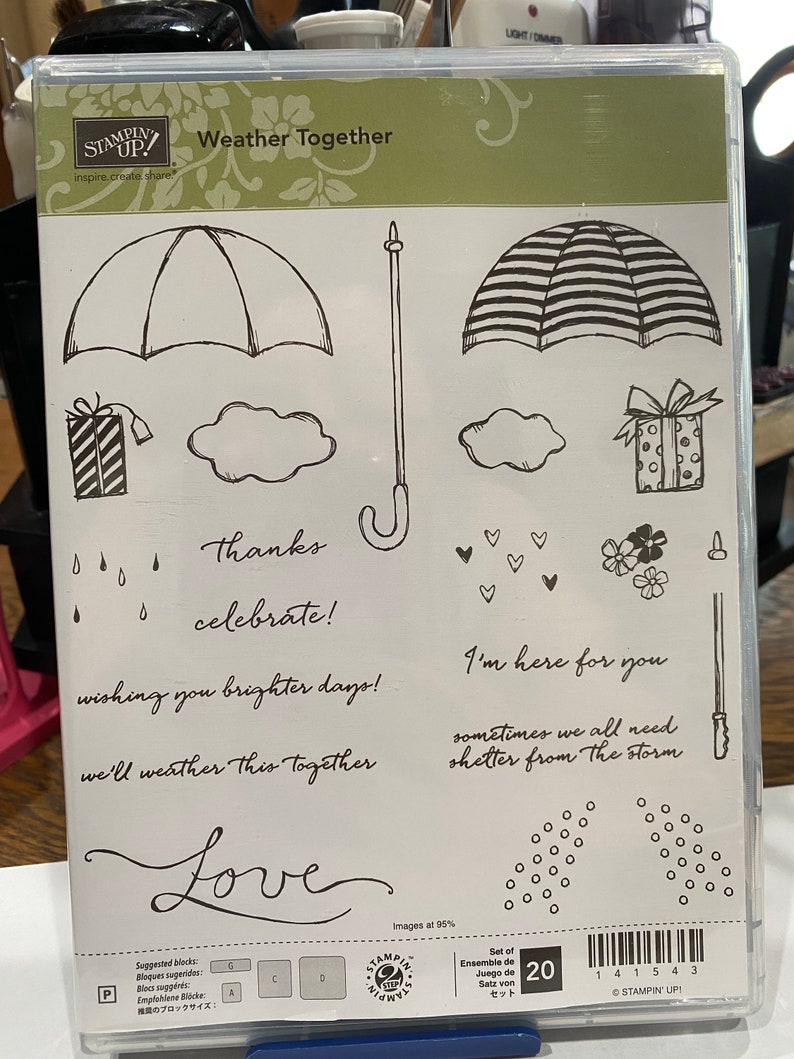 LIGHT / DIMMER
STAMPIN' UP!®
inspire.create.share.®
Weather Together
thanks
celebrate!
wishing you brighter days!
we'll weather this together
I'm here for you
sometimes we all need
shelter from the storm
Love
Images at 95%
P
Suggested blocks:
Bloques sugeridos:
Blocs suggérés:
Empfohlene Blöcke:
推奨のブロックサイズ：
G
A
C
D
STAMPIN' 2 STEP STAMPIN'™
Set of
Ensemble de
Juego de
Satz von
セット
20
141543
© STAMPIN' UP!